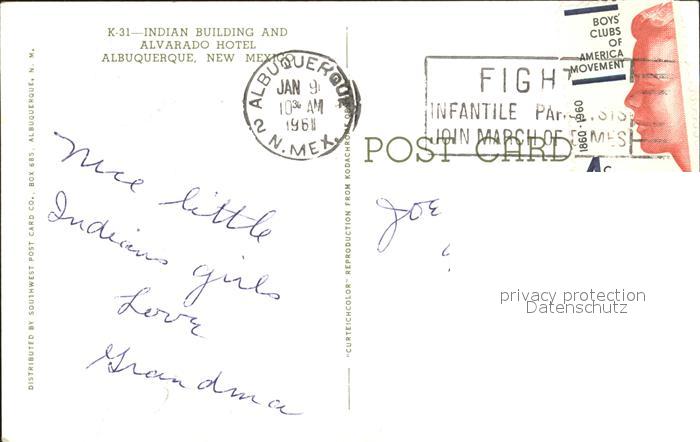 K-31—INDIAN BUILDING AND
ALVARADO HOTEL
ALBUQUERQUE, NEW MEXICO
DISTRIBUTED BY SOUTHWEST POST CARD CO., BOX 685, ALBUQUERQUE, N. M.
Nice little
Indians girls
Love
Grandma
"CURTEICHCOLOR" REPRODUCTION FROM KODACHROME
ALBUQUERQUE
JAN 9
10 30 AM
1961
2 N. MEX.
FIGHT
INFANTILE PARALYSIS
JOIN MARCH OF DIMES
BOYS'
CLUBS
OF
AMERICA
MOVEMENT
1860-1960
4c
POST CARD
Joe
privacy protection
Datenschutz